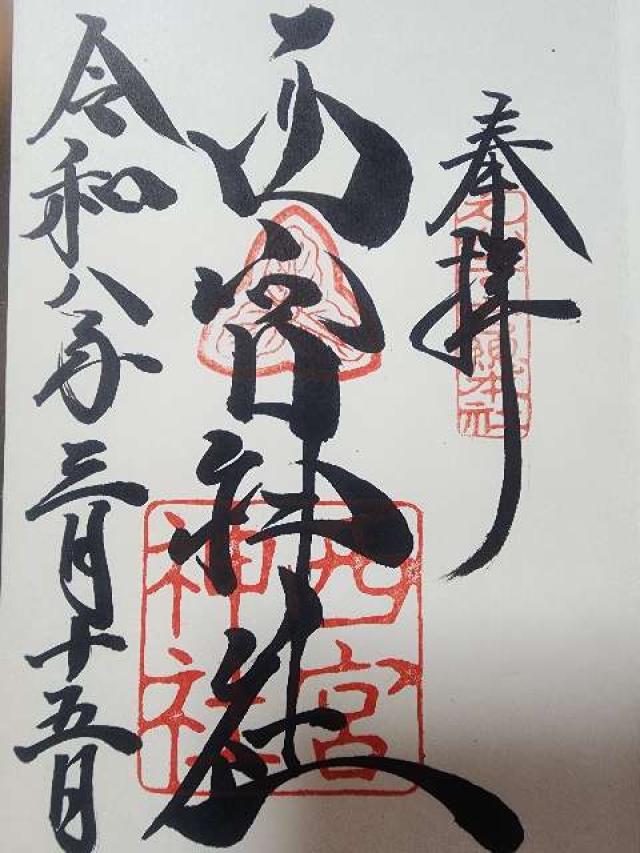 奉拝
西宮神社
西宮
神社
令和八年三月十五日